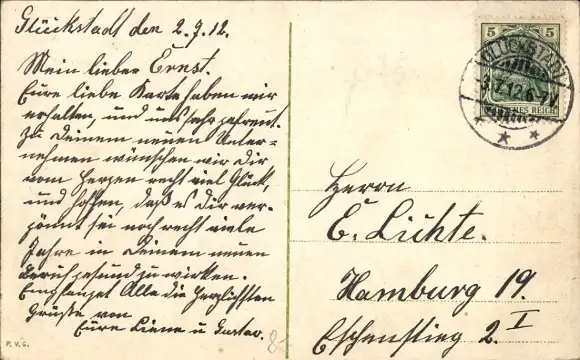 Glückstadt den 2.7.12.
Mein lieber Ernst.
Eure liebe Karte haben wir
erhalten, und uns sehr gefreut.
Zu Deinem neuen Unter-
nehmen wünschen wir Dir
vom Herzen recht viel Glück,
und hoffen, daß es Dir ver-
gönnt sei noch recht viele
Jahre in Deinem neuen
Beruf gesund zu wirken.
Empfanget Alle die Herzlichsten
Grüße von
Eure Liene u Gustav.
P. V. G.
5 5
GLÜCKSTADT
3.7.12.6-7N
DEUTSCHES REICH
Herrn
E. Lichte.
Hamburg 19.
Eschenstieg 2. I